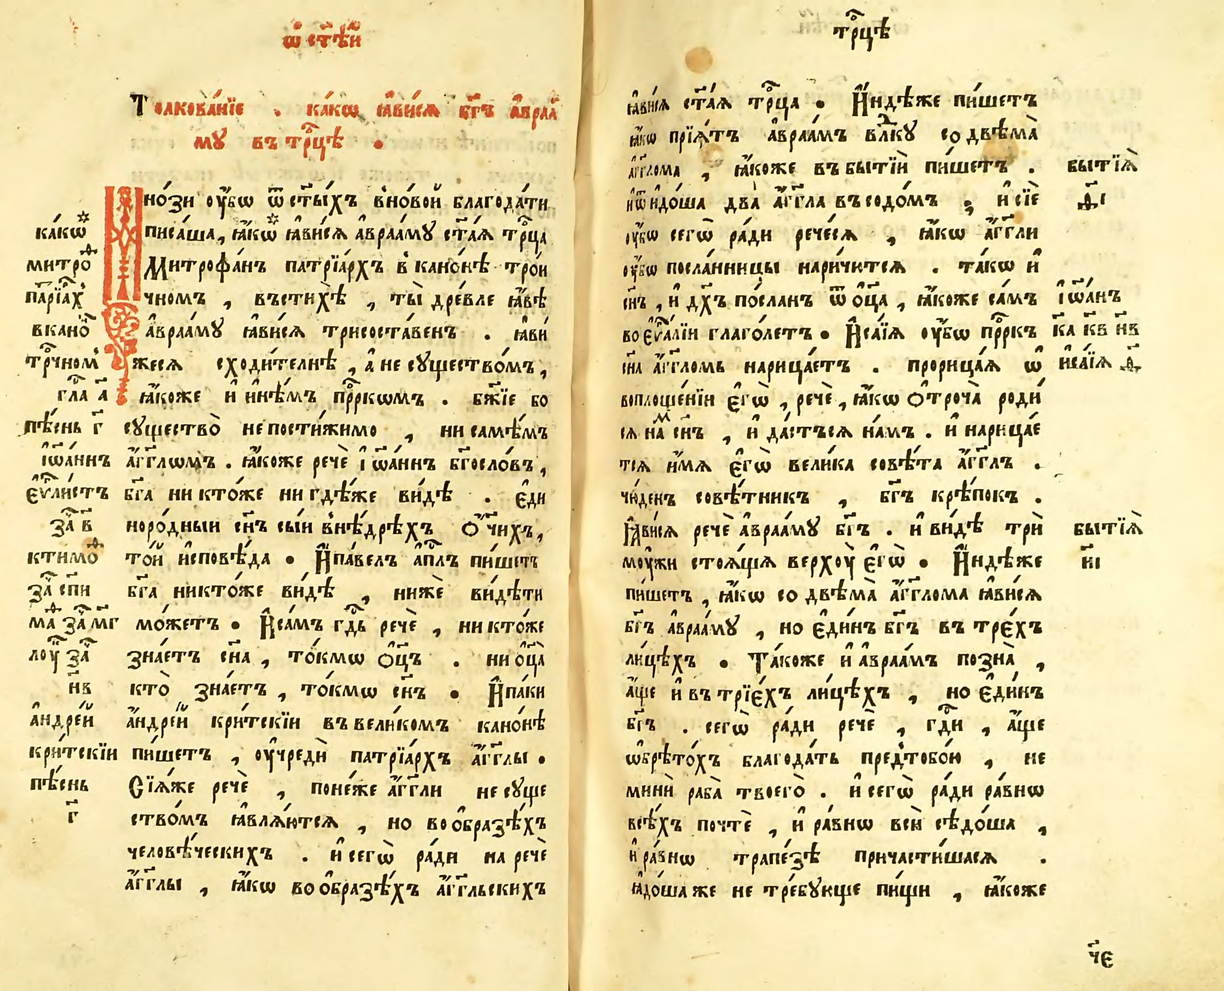 ѽ ст҃ѣй
Толкова́нїе . ка́кѡ ꙗ҆ви́сѧ бг҃ъ а҆враа́
мꙋ въ трⷪ҇цѣ .
Мно́зи оу҆́бѡ ѿ ст҃ы́хъ в̾но́вой благода́ти
писа́ша, ꙗ҆́кѡ ꙗ҆ви́сѧ а҆враа́мꙋ ст҃а́ѧ трⷪ҇ца
Митрофа́нъ патрїа́рхъ в̾кано́нѣ трои
чномъ , въсти́хѣ , ты̀ дре́вле ꙗ҆́вѣ
а҆враа́мꙋ ꙗ҆ви́сѧ трисоста́венъ . ꙗ҆ви́
жесѧ сходи́телнѣ , а҆ не сꙋщество́мъ ,
ꙗ҆́коже и҆ и҆нѣ́мъ прⷪ҇ркѡмъ . бж҃їе бо
сꙋщество̀ непостижи́мо , ни самѣ́мъ
а҆́гг҃лѡмъ . ꙗ҆́коже речѐ і҆ѡа́ннъ бг҃осло́въ ,
бг҃а никто́же нигдѣ́же ви́дѣ . є҆ди
норо́дныи сн҃ъ сы́и в̾нѣ́дрѣхъ ѻ҆́ч҃ихъ ,
то́й и҆сповѣ́да . И҆па́велъ а҆пⷭ҇лъ пи́шетъ
бг҃а никто́же ви́дѣ , нижѐ ви́дѣти
мо́жетъ . И҆са́мъ гдⷭ҇ь речѐ , никто́же
зна́етъ сн҃а , то́кмѡ ѻ҆ц҃ъ . ни ѻ҆ц҃а̀
кто̀ зна́етъ , то́кмѡ сн҃ъ . И҆па́ки
а҆ндре́й кри́тскїи въвели́комъ кано́нѣ
пи́шетъ , оу҆чредѝ патрїа́рхъ а҆́гг҃лы .
Сїѧ́же речѐ , поне́же а҆́гг҃ли не сꙋще
ство́мъ ꙗ҆влѧ́ютсѧ , но воѻ҆бразѣ́хъ
человѣ́ческихъ . и҆ сегѡ̀ ра́ди на речѐ
а҆́гг҃лы , ꙗ҆́кѡ воѻ҆бразѣ́хъ а҆́гг҃льскихъ
ка́кѡ
митро́ⷴ
патрїа́рⷯ
вкано́ⷩ
трⷪ҇чномⷨ
гла а
пѣ́снь г҃
і҆ѡа́ннъ
є҆ѵⷢ҇ли́стъ
за́ⷱ в
ктимоⷴ҇
за́ⷱ спи
маⷴ҇ за́ⷱ мг
лоу҆ за́ⷱ
нв
а҆ндре́й
кри́тскїи
пѣ́снь
г҃
трⷪ҇цѣ
ꙗ҆ви́сѧ ст҃а́ѧ трⷪ҇ца . И҆ндѣ́же пи́шетъ
ꙗ҆́кѡ прїѧ́тъ а҆враа́мъ влⷣкꙋ содвѣма̀
а҆́гг҃лома , ꙗ҆́коже въбытїѝ пи́шетъ .
и҆ѿидо́ша два̀ а҆́гг҃ла въсодо́мъ , и҆ сїѐ
оу҆́бѡ сегѡ̀ ра́ди рече́сѧ , ꙗ҆́кѡ а҆́гг҃ли
оу҆́бѡ посла́нницы нарича́ются . та́кѡ и҆
сн҃ъ , и҆ дх҃ъ по́сланъ ѿ ѻ҆ц҃а̀ , ꙗ҆́коже са́мъ
воє҆ѵⷢ҇а́лїи глаго́летъ . И҆са́їѧ оу҆́бѡ прⷪ҇ркъ
сн҃а а҆́гг҃ломъ нарица́етъ . прорица́ѧ ѡ҆
воплоще́нїи є҆гѡ̀ , речѐ , ꙗ҆́кѡ ѻ҆троча̀ роди́
сѧ на́мъ сн҃ъ , и҆ да́стъсѧ на́мъ . и҆ нарица́е
тсѧ и҆́мѧ є҆гѡ̀ вели́ка совѣ́та а҆́гг҃лъ .
чи́денъ совѣ́тникъ , бг҃ъ крѣ́покъ .
Ꙗ҆ви́сѧ речѐ а҆враа́мꙋ бг҃ъ . и҆ ви́дѣ трѝ
моу́жи стоѧ́щѧ верхоу̀ є҆гѡ̀ . И҆ндѣ́же
пи́шетъ , ꙗ҆́кѡ содвѣма̀ а҆́гг҃лома ꙗ҆ви́сѧ
бг҃ъ а҆враа́мꙋ , но є҆ди́нъ бг҃ъ въ тре́хъ
ли́цѣхъ . Та́коже и҆ а҆враа́мъ позна̀ ,
а҆́ще и҆ въ трїе́хъ ли́цѣхъ , но є҆ди́нъ
бг҃ъ . сегѡ̀ ра́ди речѐ , гдⷭ҇и , а҆́ще
ѡ҆брѣто́хъ благода́ть предтобо́ю , не
минѝ раба̀ твоегѡ̀ . и҆ сегѡ̀ ра́ди ра́внѡ
всѣ́хъ почтѐ , и҆ ра́внѡ всѝ сѣдо́ша ,
и҆ ра́внѡ трапе́зѣ причасти́шасѧ .
ꙗ҆до́шаже не тре́бꙋюще пи́щи , ꙗ҆́коже
бытїѧ̀
д҃і
і҆ѡа́нъ
ка кв нв
и҆са́їѧ д҃
бытїѧ̀
и҃і
ч҃є